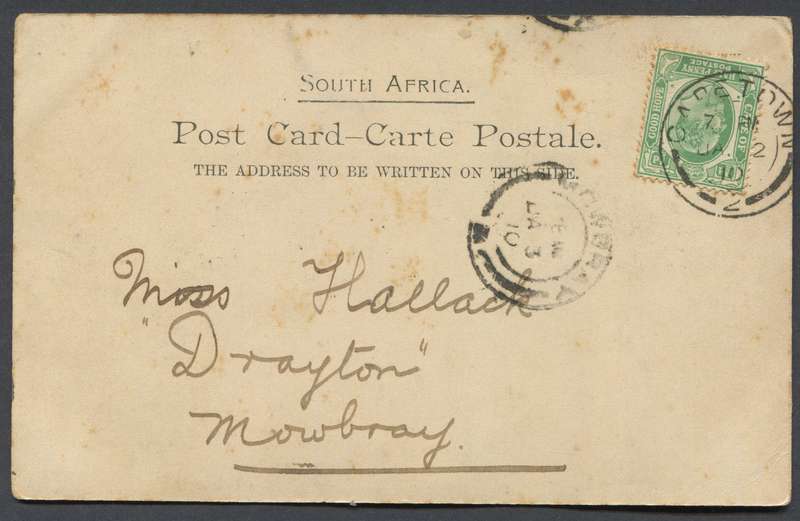 SOUTH AFRICA.
Post Card–Carte Postale.
THE ADDRESS TO BE WRITTEN ON THIS SIDE.
HALF PENNY
POSTAGE
GOOD HOPE
CAPE OF
CAPE TOWN
7
JA 2
10
2
MOWBRAY
JA 3
10
Miss Hallack
"Drayton"
Mowbray.